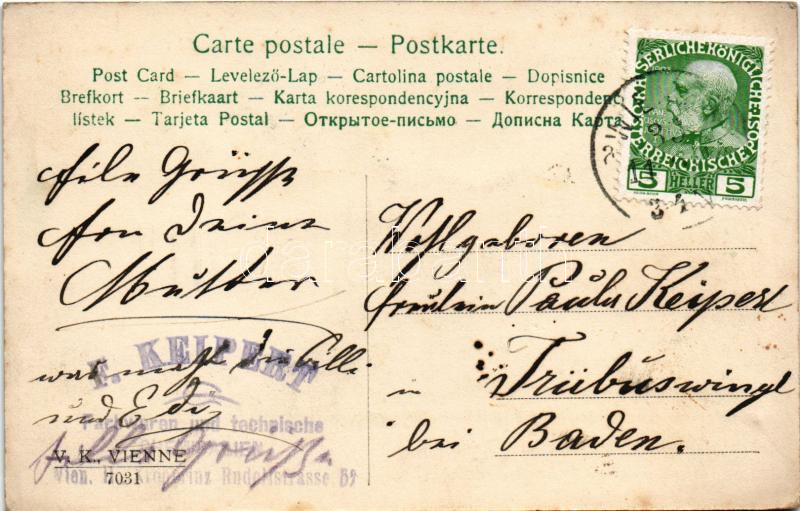 Carte postale — Postkarte.
Post Card — Levelező-Lap — Cartolina postale — Dopisnice
Brefkort — Briefkaart — Karta korespondencyjna — Korrespondenc
lístek — Tarjeta Postal — Открытое-письмо — Дописна Карта
KAISERLICHE KÖNIGLICHE ÖSTERREICHISCHE POST
5 HELLER 5
WIEN
file Grüsse
fon Deine
Mutter
was macht die Cilli
und Edi
file Grüsse
F. KEIPERT
Farbwaren und technische
WIEN
Wien, II. Kronprinz Rudolfstrasse
V. K., VIENNE
7031
Wohlgeboren
Freulein Paula Keipert
in Tribuswingl
bei Baden.
darabanth